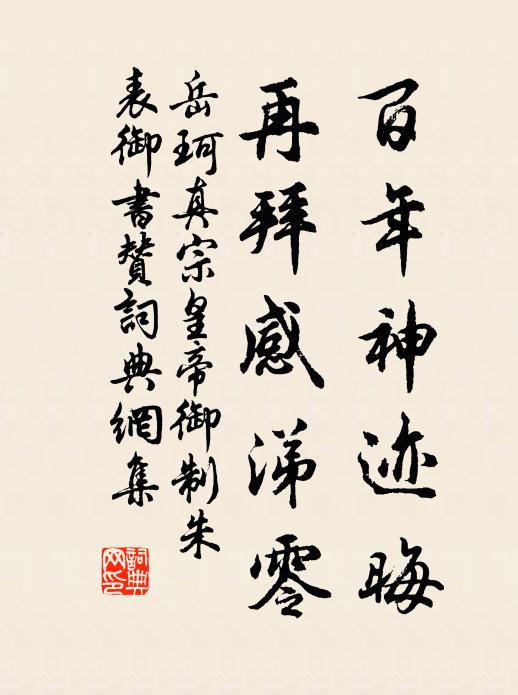 百年神迹晦
再拜感涕零
岳珂真宗皇帝御制朱
表御書贊詞典網集
詞典網印